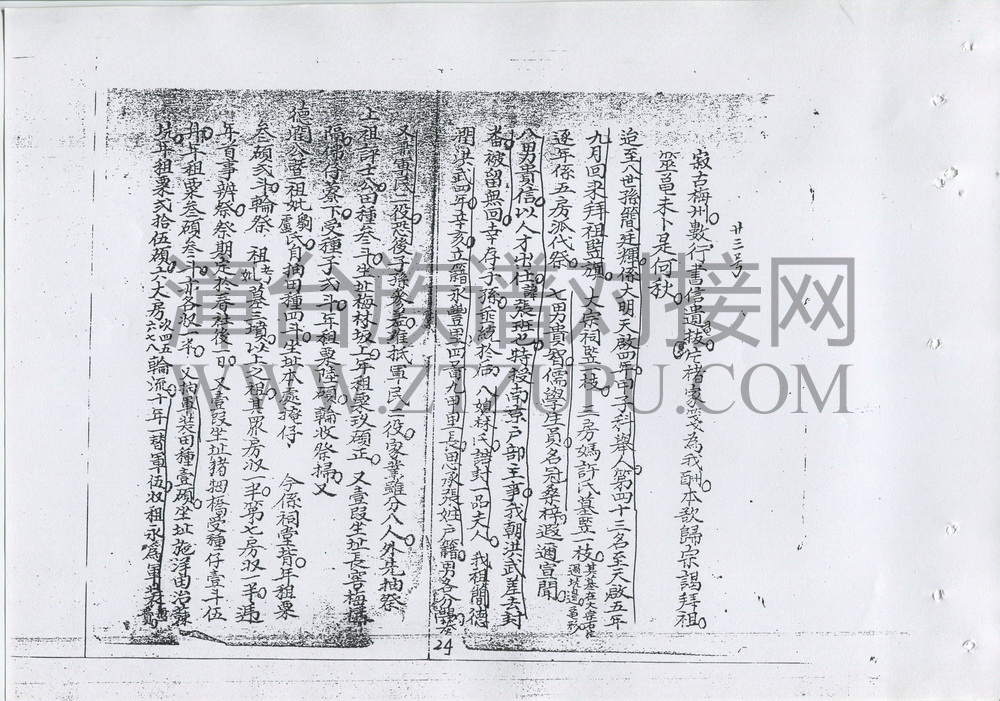 廿三号
寂古梅州數行書信遺孩
為我酬本欲歸宗謁拜祖
靈亀未卜是何秋
迨至八世孫簡廷輝係大明天啟四年甲子科舉人第四十三名至天啟五年
九月回來拜祖竪旗 大宗祠竪一枝 三房媽許氏墓竪一枝
逐年係五房派代祭 七男貴智儒學庄員名冠桑梓遐邇宣聞
八男貴信以人才出仕諱張班也特授南京戶部主事我朝洪武差去封
番被留無回幸存子孫 於后八娘林氏誥封一品夫人 我祖簡德
潤洪武四年辛亥立籍永豐里四畐九甲里長思承張姓戶籍男各分
又承軍民二役恐後子孫參差难抵軍民二役家業雖分八人外先抽祭
上祖評士公田種叁斗坐址梅林坂上年租粟玖碩正 又壹叚坐址長窖梅樣
隔佛仔藔下受種子弍斗年租粟陸碩輪收祭掃 又
德潤公暨祖妣劉盧氏自抽田種四斗坐址本處掩仔 今係祠堂背年租粟
叁碩弍斗輪祭 祖考妣墓三塚以上之租其眾房収一半第七房収一半遞
年首事辨祭祭期定於春社後一日 又壹叚坐址猪 橋受種仔壹斗伍
升年租粟叁碩叁斗亦各収一半 又抅軍裝田種壹碩坐址施洋由治藔
坑年租粟弍拾伍碩 大房 次四五六七八 輪流十年一替軍伍収租永為軍裝
24
漳台族谱对接网
WWW.ZTZUPU.COM